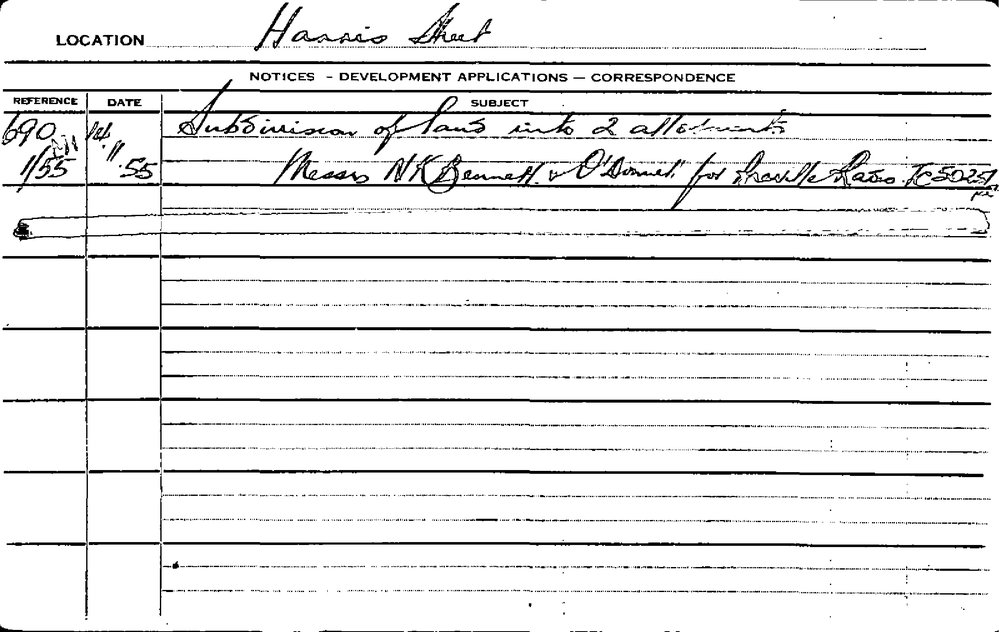 LOCATION Harris Street
NOTICES - DEVELOPMENT APPLICATIONS — CORRESPONDENCE
REFERENCE DATE SUBJECT
690 Subdivision of land into 2 allotments
1/55 11.55 Messrs N K Bennett & O'Donnell for